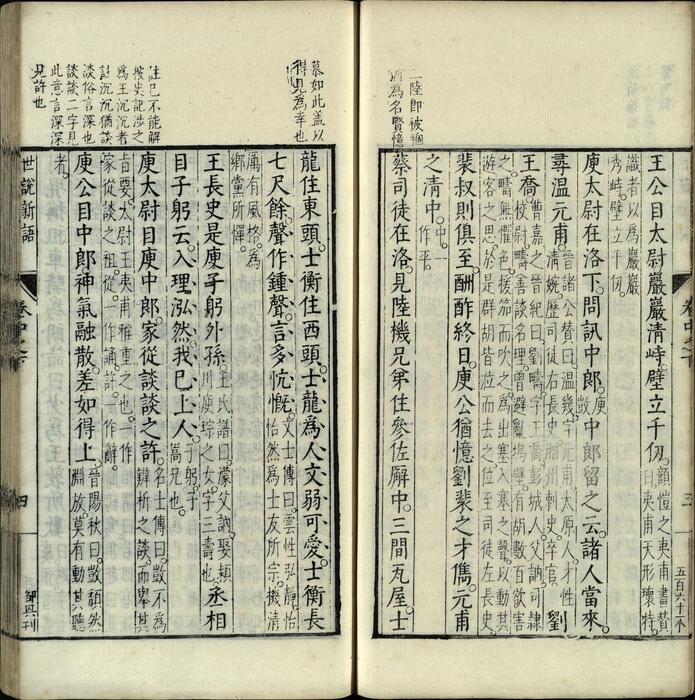 二陸即被稇
猶為名賢憶
王公目太尉巖巖清峙壁立千仞顧愷之夷甫畫贊曰夷甫天形瓌特
識者以為巖巖秀峙壁立千仞
庾太尉在洛下問訊中郎庾敳中郎留之云諸人當來
尋溫元甫晉諸公贊曰溫幾字元甫太原人才性清婉歷司徒右長史湘州刺史卒官劉
王喬曹嘉之晉紀曰劉疇字王喬彭城人父訥司隸校尉疇善談名理曾避亂塢壁有胡數百欲害
之疇無懼色援笳而吹之為出塞入塞之聲以動其遊客之思於是群胡皆泣而去之位至司徒左長史
裴叔則俱至酬酢終日庾公猶憶劉裴之才儁元甫
之清中中一作平
蔡司徒在洛見陸機兄弟住參佐廨中三間瓦屋士
三
五百六十二不
慕如此蓋以
得見為幸也
龍住東頭士衡住西頭士龍為人文弱可愛士衡長
七尺餘聲作鍾聲言多忼慨文士傳曰雲性弘靜怡怡然為士友所宗機清
厲有風格為鄉黨所憚
王長史是庾子躬外孫王氏譜曰濛父訥娶潁川庾琮之女字三壽也丞相
目子躬云入理泓然我已上人子躬子嵩兄也
註已不能解
坡史記涉之
為王沉沉者
註沉沉猶談
談俗言深也
談談二字見
此意言深深
見許也
庾太尉目庾中郎家從談談之許名士傳曰敳不為辨析之談而舉其
旨要太尉王夷甫雅重之也一作家從談之祖從一作誦許一作辭
庾公目中郎神氣融散差如得上晉陽秋曰敳頹然淵放莫有動其聽
者
世說新語
卷中之下
四
鄒興刊